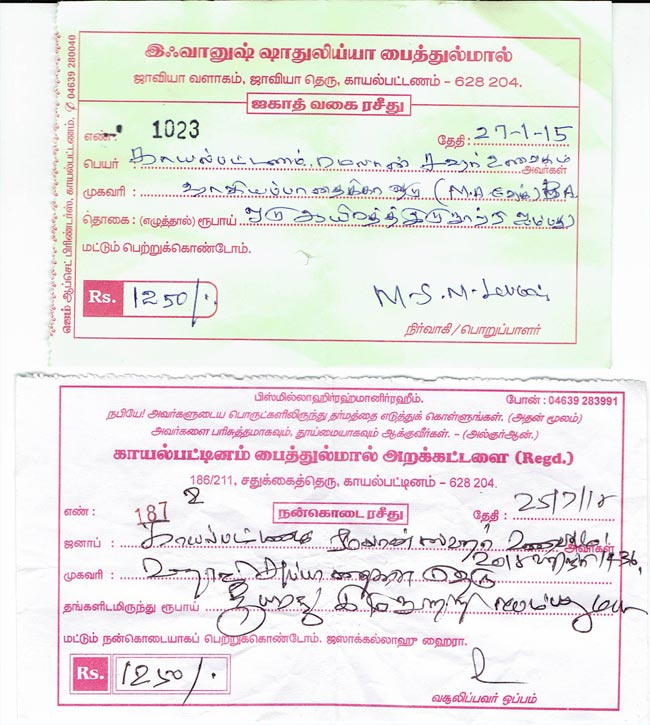 இஃவானுஷ் ஷாதுலிய்யா பைத்துல்மால்
ஜாவியா வளாகம், ஜாவியா தெரு, காயல்பட்டணம் - 628 204.
ஜகாத் வகை ரசீது
எண் : 1023 தேதி : 27-1-15
பெயர் காயல்பட்டணம், ரமலான் சஹர் உணவு அவர்கள்
முகவரி :
தொகை : (எழுத்தால்) ரூபாய் ஒரு ஆயிரத்து இருநூற்றி ஐம்பது
மட்டும் பெற்றுக்கொண்டோம்.
Rs. 1250/-
நிர்வாகி / பொறுப்பாளர்
ஜெம் ஆப்செட் பிரிண்டர்ஸ், காயல்பட்டணம், ✆ 04639 280040
பிஸ்மில்லாஹிர்ரஹ்மானிர்ரஹீம். போன் : 04639 283991
நபியே! அவர்களுடைய பொருட்களிலிருந்து தர்மத்தை எடுத்துக் கொள்ளுங்கள். (அதன் மூலம்)
அவர்களை பரிசுத்தமாகவும், தூய்மையாகவும் ஆக்குவீர்கள். - (அல்குர்ஆன்.)
காயல்பட்டினம் பைத்துல்மால் அறக்கட்டளை (Regd.)
186/211, சதுக்கைத்தெரு, காயல்பட்டினம் - 628 204.
எண் : 187 2 நன்கொடை ரசீது தேதி : 25/7/15
ஜனாப் : காயல்பட்டணம் ரமலான் ஸஹர் அவர்கள்
1436
முகவரி : தெரு
தங்களிடமிருந்து ரூபாய்
மட்டும் நன்கொடையாகப் பெற்றுக்கொண்டோம். ஜஸாக்கல்லாஹு ஹைரா.
Rs. 1250/-
வசூலிப்பவர் ஒப்பம்